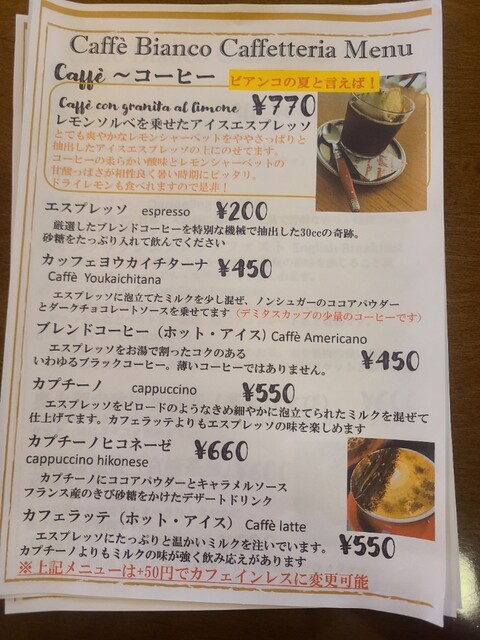 Caffè Bianco Caffetteria Menu
Caffè ～コーヒー
ビアンコの夏と言えば！
Caffè con granita al limone ¥770
レモンソルベを乗せたアイスエスプレッソ
とても爽やかなレモンシャーベットをややさっぱりと
抽出したアイスエスプレッソの上にのせてます。
コーヒーの柔らかい酸味とレモンシャーベットの
甘酸っぱさが相性良く暑い時期にピッタリ。
ドライレモンも食べれますので是非！
エスプレッソ espresso ¥200
厳選したブレンドコーヒーを特別な機械で抽出した30ccの奇跡。
砂糖をたっぷり入れて飲んでください
カッフェヨウカイチターナ ¥450
Caffè Youkaichitana
エスプレッソに泡立てたミルクを少し混ぜ、ノンシュガーのココアパウダー
とダークチョコレートソースを乗せてます（デミタスカップの少量のコーヒーです）
ブレンドコーヒー（ホット・アイス）Caffè Americano
エスプレッソをお湯で割ったコクのある
いわゆるブラックコーヒー。薄いコーヒーではありません。 ¥450
カプチーノ cappuccino ¥550
エスプレッソをビロードのようなきめ細やかに泡立てられたミルクを混ぜて
仕上げてます。カフェラッテよりもエスプレッソの味を楽しめます
カプチーノヒコネーゼ ¥660
cappuccino hikonese
カプチーノにココアパウダーとキャラメルソース
フランス産のきび砂糖をかけたデザートドリンク
カフェラッテ（ホット・アイス） Caffè latte
エスプレッソにたっぷりと温かいミルクを注いでいます。 ¥550
カプチーノよりもミルクの味が強く飲み応えがあります
※上記メニューは+50円でカフェインレスに変更可能